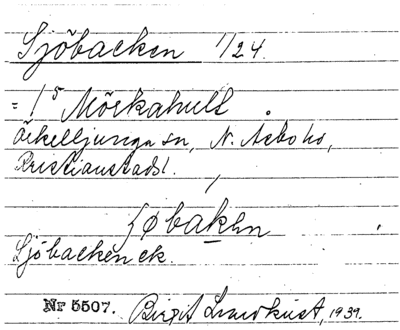 Sjöbacken 1/24.
= 1⁵ Mörkahult.
Örkelljunga sn, N. Åsbo hd,
Kristianstads l.
ʃøbakən
Sjöbacken ek.
Nr 5507. Birgit Lundkvist, 1939.